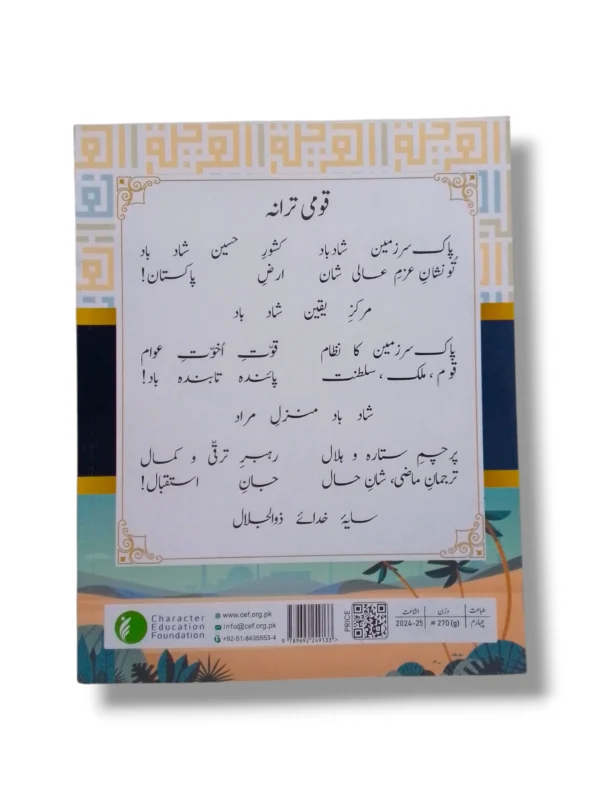 قومی ترانہ
پاک سرزمین شاد باد کشورِ حسین شاد باد
تُو نشانِ عزمِ عالی شان ارضِ پاکستان!
مرکزِ یقین شاد باد
پاک سرزمین کا نظام قوّتِ اُخوّتِ عوام
قوم، ملک، سلطنت پائندہ تابندہ باد!
شاد باد منزلِ مراد
پرچمِ ستارہ و ہلال رہبرِ ترقّی و کمال
ترجمانِ ماضی، شانِ حال جانِ استقبال!
سایۂ خدائے ذوالجلال
Character
Education
Foundation
www.cef.org.pk
info@cef.org.pk
+92-51-8435553-4
9 789692 249133 >
PRICE
طباعت وزن اشاعت
چہارم 270 (g) 2024-25